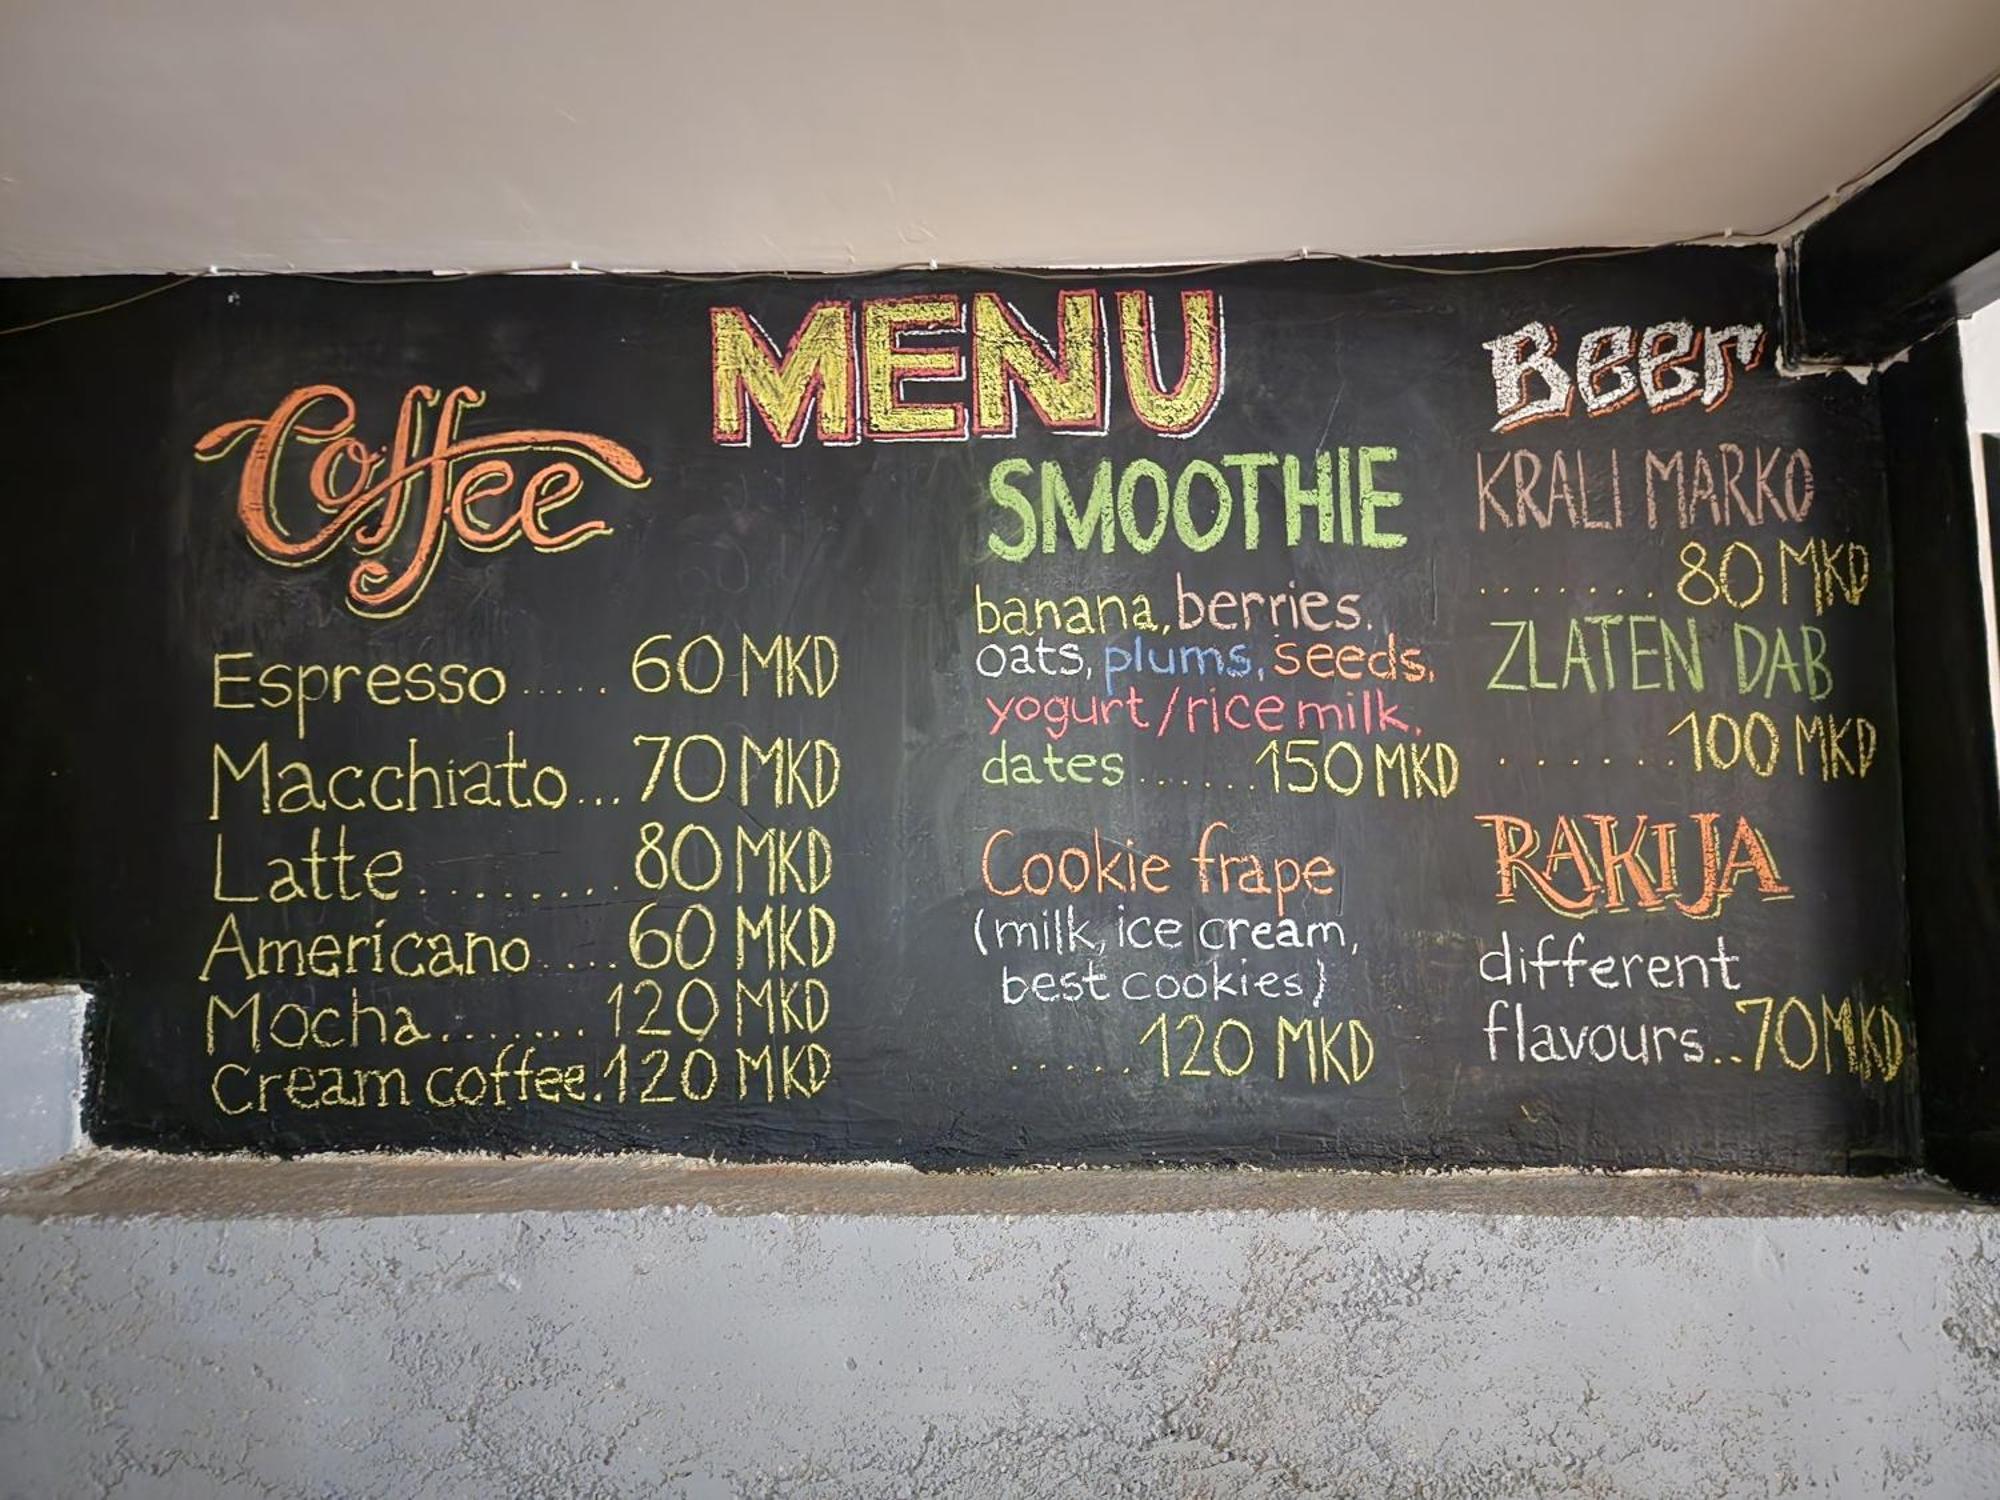 MENU
Coffee
Espresso ..... 60 MKD
Macchiato ... 70 MKD
Latte ......... 80 MKD
Americano .... 60 MKD
Mocha ....... 120 MKD
Cream coffee. 120 MKD
SMOOTHIE
banana, berries.
oats, plums, seeds,
yogurt/rice milk,
dates ...... 150 MKD
Cookie frape
(milk, ice cream,
best cookies)
..... 120 MKD
Beer
KRALI MARKO
....... 80 MKD
ZLATEN DAB
....... 100 MKD
RAKIJA
different
flavours.. 70 MKD